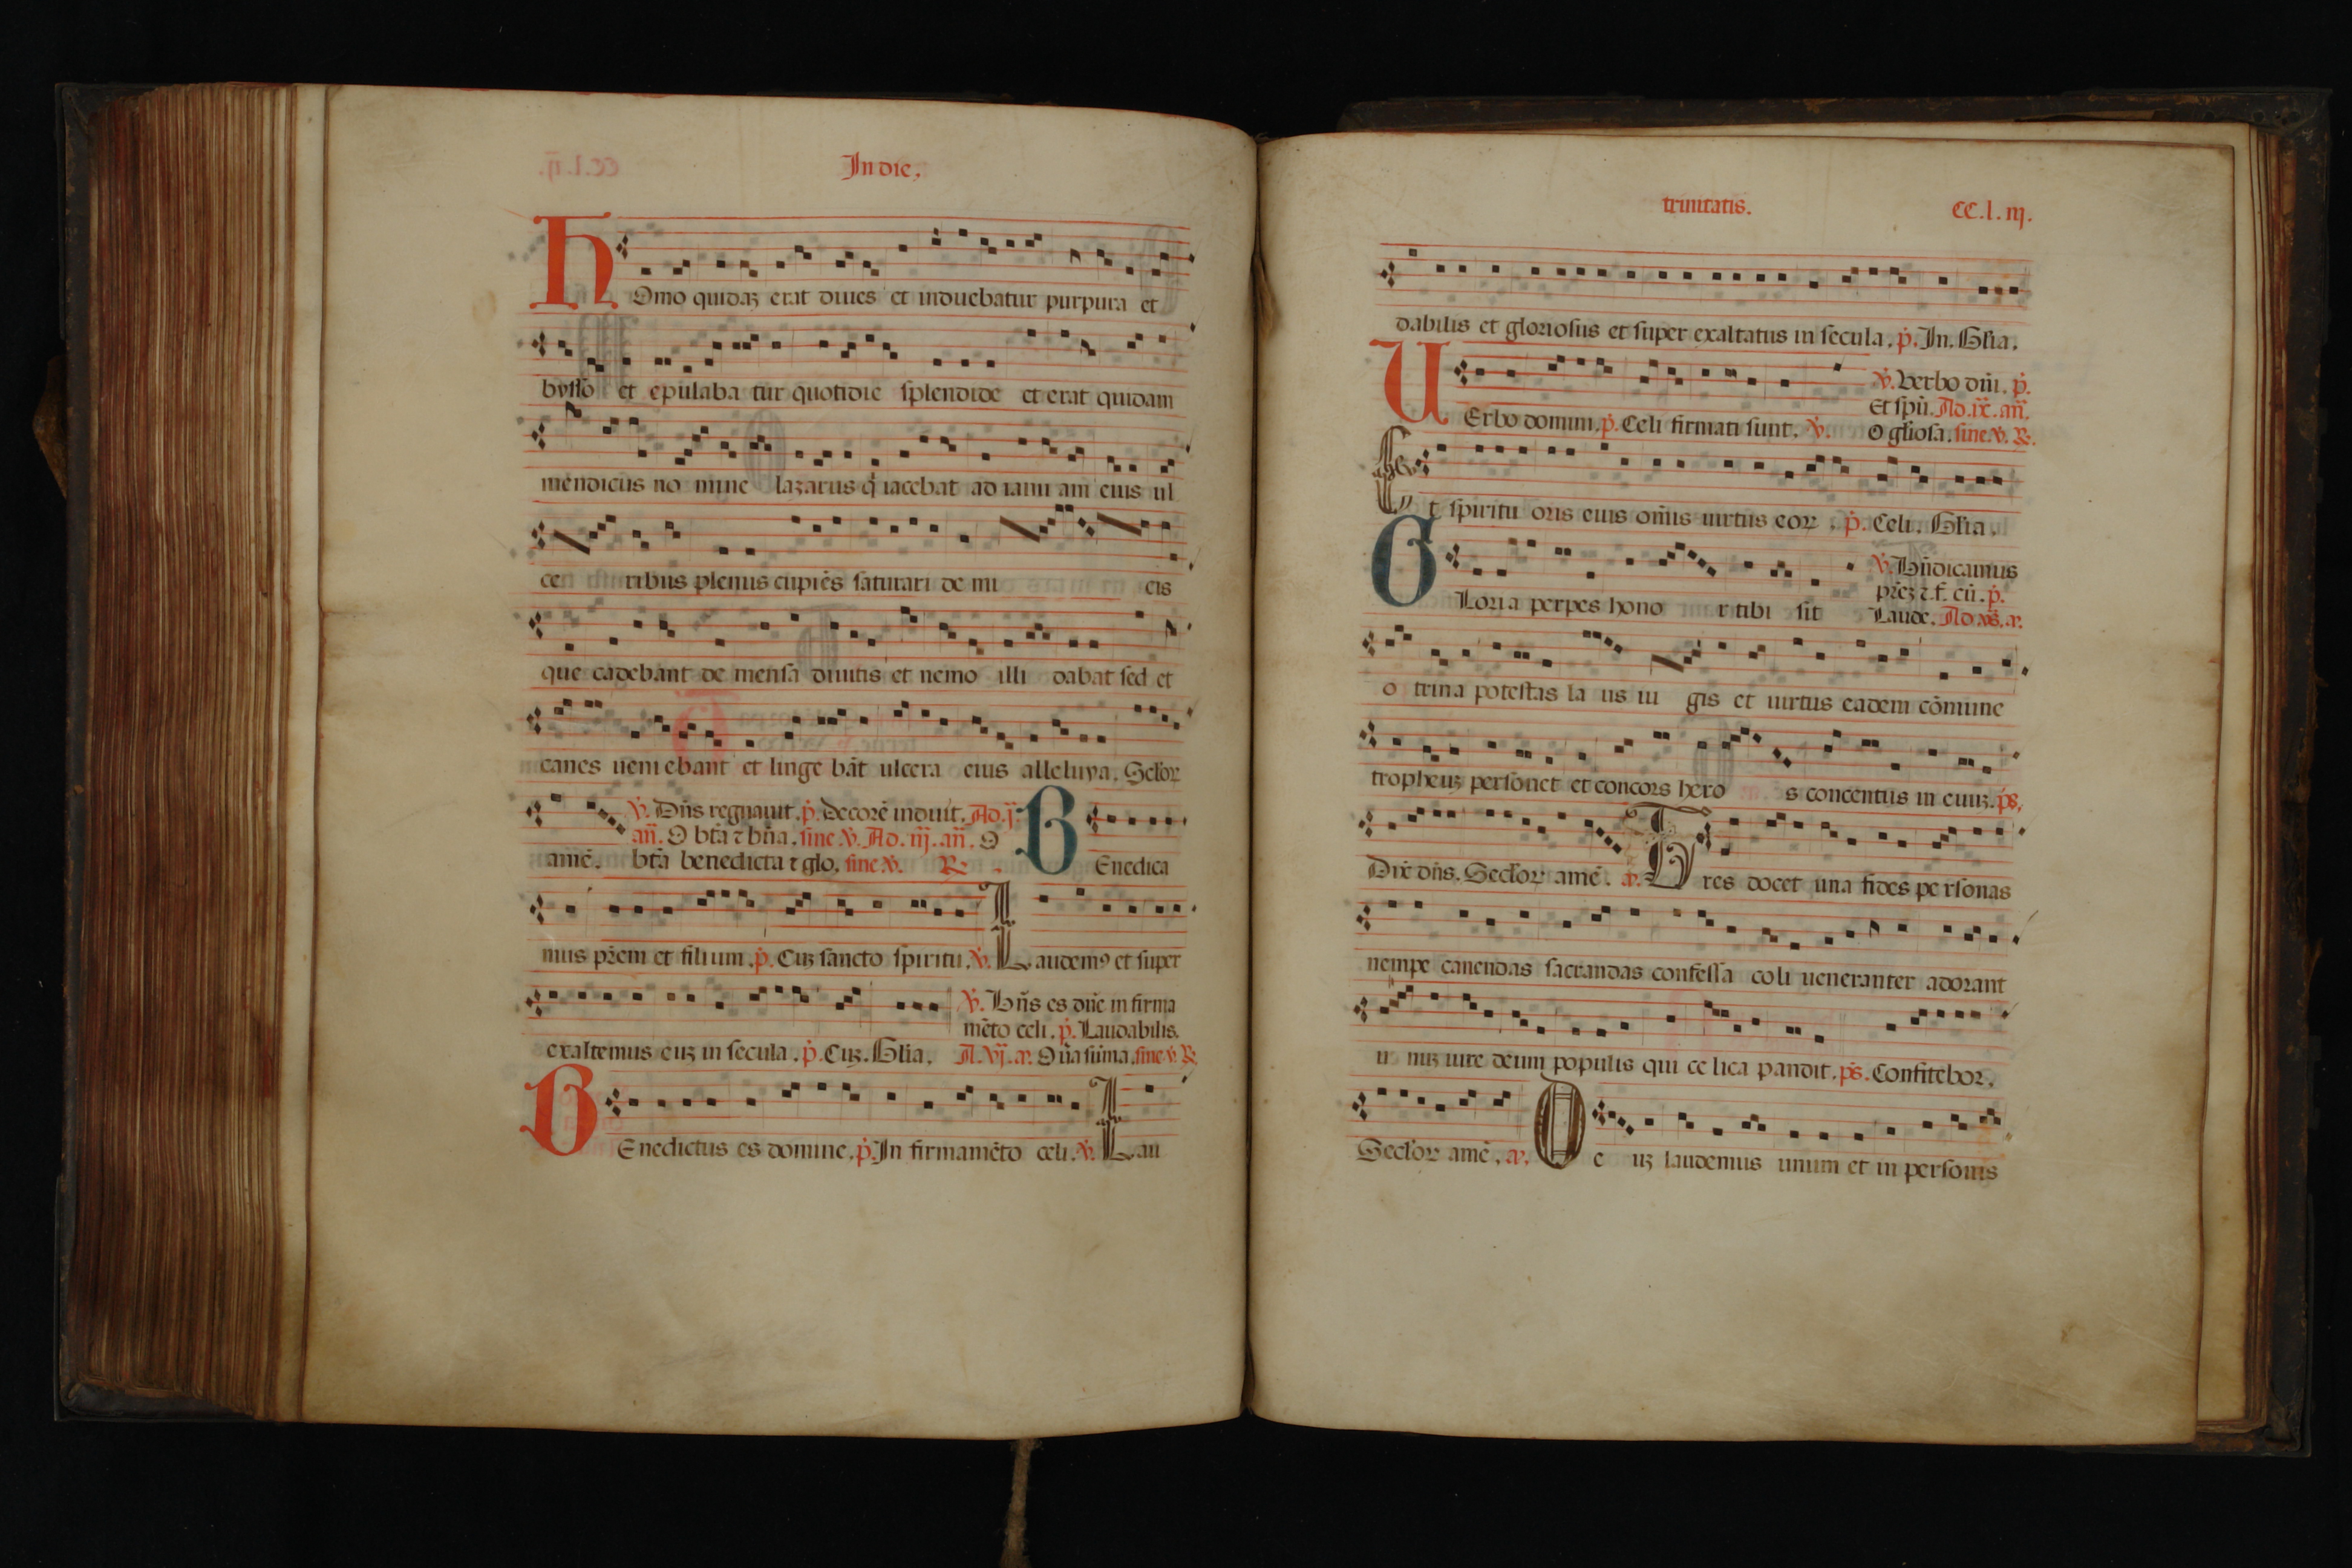 In die.
HOmo quidaʒ erat diues et induebatur purpura et
bysso et epulaba tur quotidie splendide et erat quidam
mendicus no mine lazarus q̄ iacebat ad ianu am eius ul
ce ribus plenus cupiēs saturari de mi cis
que cadebant de mensa diuitis et nemo illi dabat sed et
canes ueni ebant et linge bāt ulcera eius alleluya. Seclor
v̇. Dn̄s regnauit. ṗ. decorē induit. Ad. ij.
an̄. O btā ⁊ bn̄a. sine v̇. Ad. iij. an̄. O
amē. btā benedicta ⁊ glo. sine v̇. ℞ BEnedica
mus pr̄em et filium. ṗ. Cuʒ sancto spiritu. v̇. Laudemꝰ et super
v̇. Bn̄s es dn̄e in firma
mēto celi. ṗ. Laudabilis.
exaltemus euʒ in secula. ṗ. Cuʒ. Glia. A. vj. a. O ūa sūma. sine v̇. ℞.
BEnedictus es domine. ṗ. In firmamēto celi. v̇. Lau
trinitatis. CC. l. iij.
dabilis et gloriosus et super exaltatus in secula. ṗ. In. Glia.
v̇. Verbo dn̄i. ṗ.
Et spū. Ad. ix. an̄.
UErbo domini. ṗ. Celi firmati sunt. v̇. O gliosa. sine. v̇. ℞.
Et spiritu oris eius om̄is uirtus eoꝝ. ṗ. Celi. Glia.
v̇. Bn̄dicamus
pr̄eʒ ⁊ f. cū. ṗ.
GLoria perpes hono r tibi sit Laude. Ad. vs̄. a.
o trina potestas la us iu gis et uirtus eadem cōmune
tropheuʒ personet et concors hero s concentus in euuʒ. ps̄.
Dix̄ dn̄s. Seclor amē. a. Tres docet una fides pe rsonas
nempe canendas sacrandas confessa coli ueneranter adorant
u niʒ iure deum populis qui ce lica pandit. ps̄. Confitebor.
Seclor amē. a. De uʒ laudemus unum et in personis